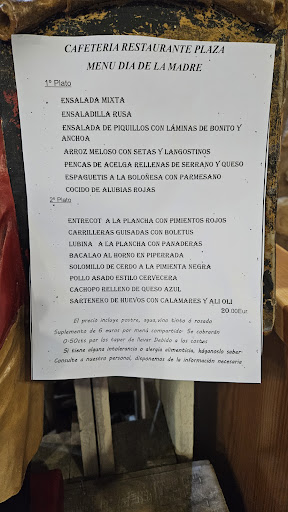 CAFETERIA RESTAURANTE PLAZA
MENU DIA DE LA MADRE
1º Plato
ENSALADA MIXTA
ENSALADILLA RUSA
ENSALADA DE PIQUILLOS CON LÁMINAS DE BONITO Y
ANCHOA
ARROZ MELOSO CON SETAS Y LANGOSTINOS
PENCAS DE ACELGA RELLENAS DE SERRANO Y QUESO
ESPAGUETIS A LA BOLOÑESA CON PARMESANO
COCIDO DE ALUBIAS ROJAS
2º Plato
ENTRECOT A LA PLANCHA CON PIMIENTOS ROJOS
CARRILLERAS GUISADAS CON BOLETUS
LUBINA A LA PLANCHA CON PANADERAS
BACALAO AL HORNO EN PIPERRADA
SOLOMILLO DE CERDO A LA PIMIENTA NEGRA
POLLO ASADO ESTILO CERVECERA
CACHOPO RELLENO DE QUESO AZUL
SARTENEKO DE HUEVOS CON CALAMARES Y ALI OLI
20.00Eur
El precio incluye postre, agua,vino tinto ó rosado
Suplemento de 6 euros por menú compartido. Se cobrarán
0.50cts por los tuper de llevar Debido a los costes
Si tiene alguna intolerancia o alergia alimenticia, háganoslo saber.
Consulte a nuestro personal, disponemos de la información necesaria